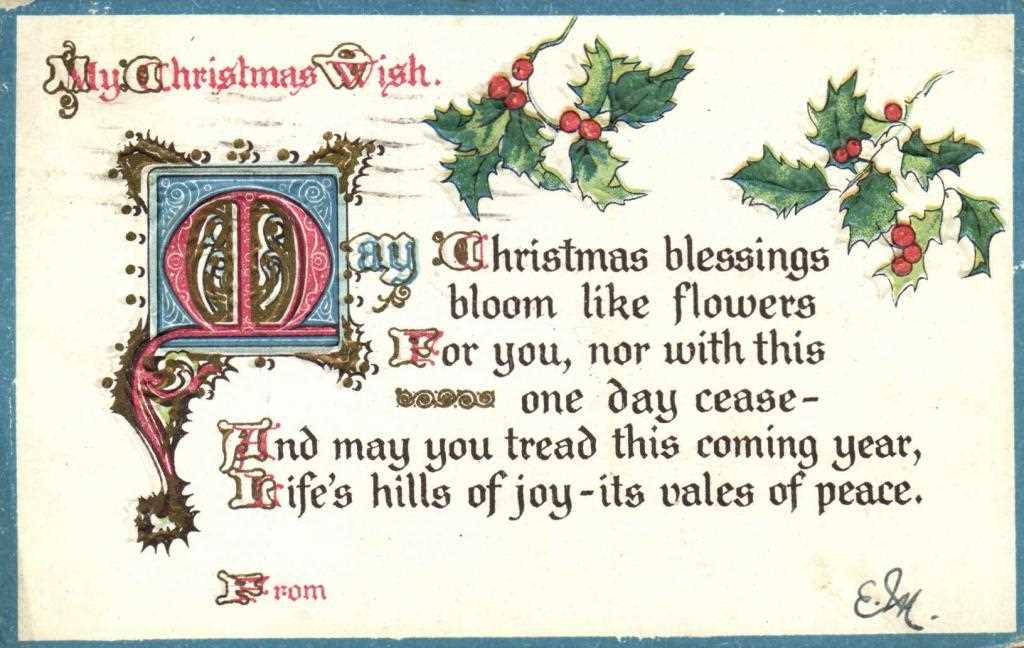 My Christmas Wish.
May Christmas blessings
bloom like flowers
For you, nor with this
one day cease-
And may you tread this coming year,
Life's hills of joy-its vales of peace.
From
E.M.